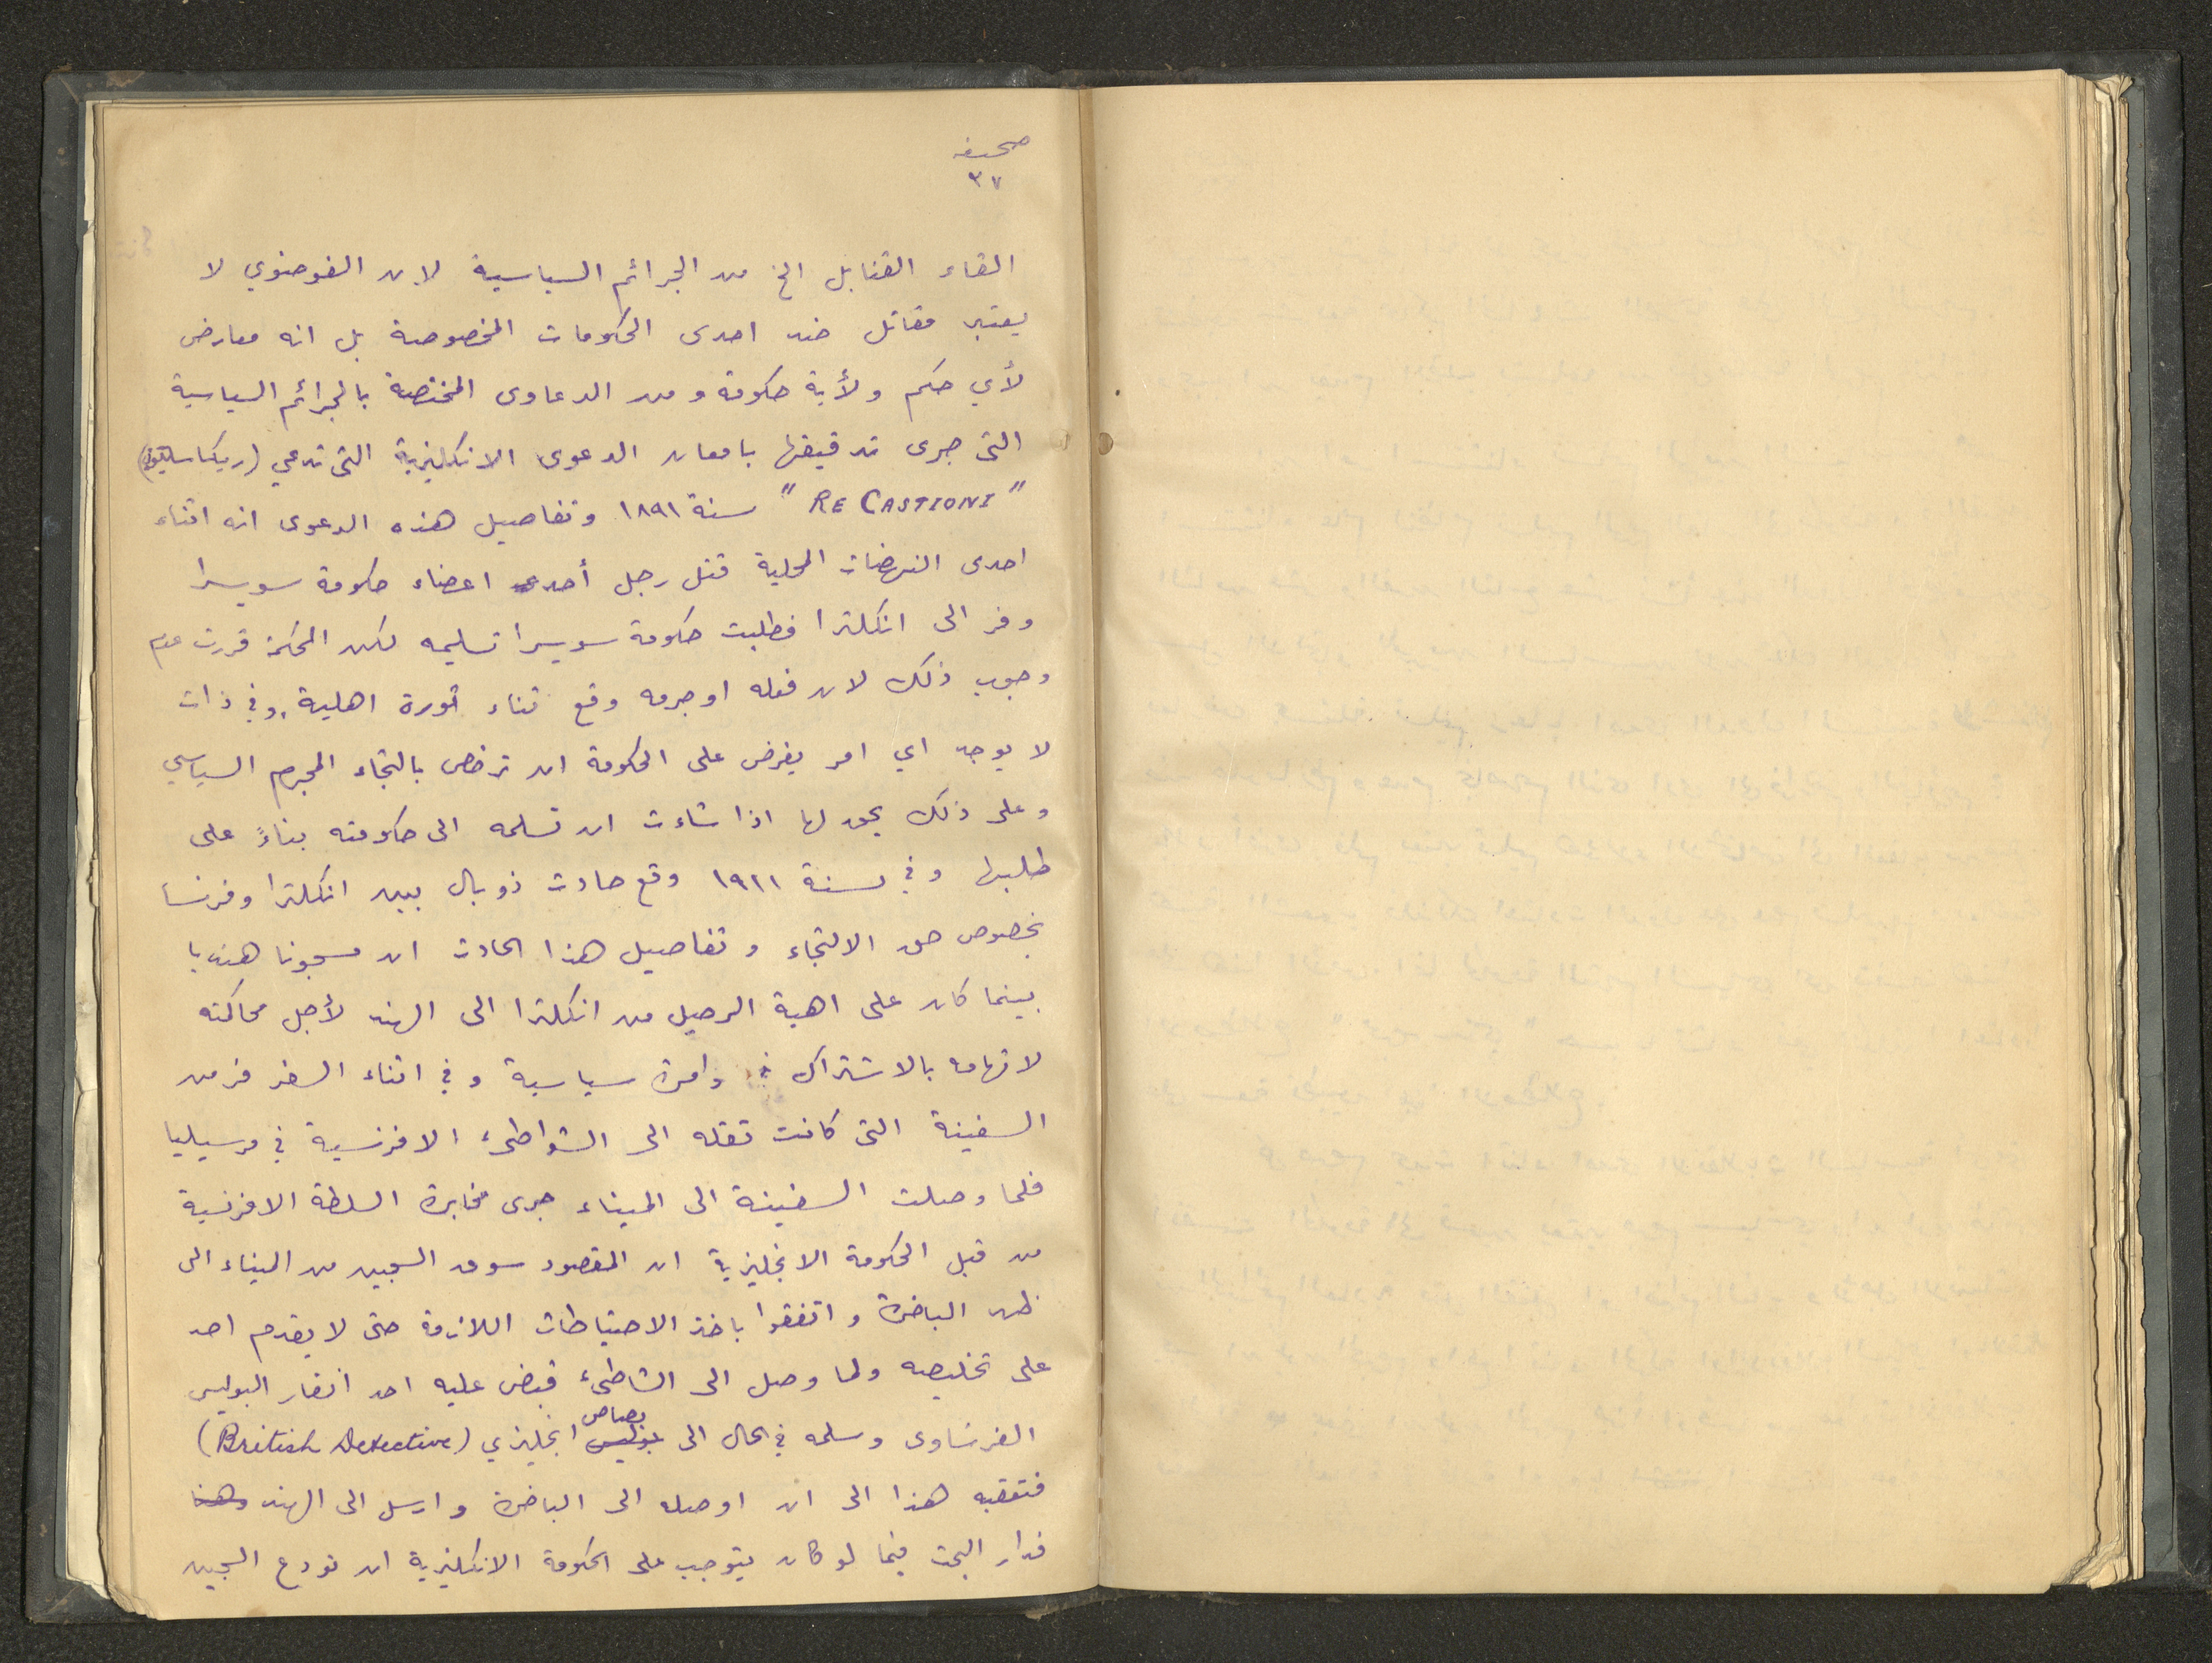 صحيفه
٣٧
القاء القنابل الخ من الجرائم السياسية لان الفوضوي لا
يعتبر مقاتل ضد احدى الحكومات المخصوصة بل انه معارض
لأي حكم ولأية حكومة ومن الدعاوى المختصة بالجرائم السياسية
التى جرى تدقيقها بامعان الدعوى الانكليزية التى تدعي
"RE CASTIONI" سنة ١٨٩١ وتفاصيل هذه الدعوى انه اثناء
احدى النهضات المحلية قتل رجل أحد اعضاء حكومة سويسرا
وفر الى انكلترا فطلبت حكومة سويسرا تسليمه لكن المحكمة قررت عدم
وجوب ذلك لان فعله او جرمه وقع ثناء ثورة اهلية. وفي ذات
لا يوجد اي امر يفرض على الحكومة ان ترخص بالتجاء المجرم السياسي
وعلى ذلك يحق لها اذا شاءت ان تسلمه الى حكومته بناءً على
طلبها وفي سنة ١٩١١ وقع حادث ذو بال بين انكلترا وفرنسا
بخصوص حق الالتجاء وتفاصيل هذا الحادث ان مسجونا هنديا
بينما كان على اهبة الرحيل من انكلترا الى الهند لأجل محاكمته
لاتهامه بالاشتراك في وامرة سياسية وفي اثناء السفر فر من
السفينة التى كانت تقله الى الشواطىء الافرنسية في مرسيليا
فلما وصلت السفينة الى الميناء جرى مخابرة السلطة الافرنسية
من قبل الحكومة الانجليزية ان المقصود سوق السجين من الميناء الى
ظهر الباخرة واتفقوا باخذ الاحتياطات اللازمة حتى لا يقدم احد
على تخليصه ولما وصل الى الشاطىء قبض عليه احد انفار البوليس
الفرنساوى وسلمه في الحال الى بوليس بصاص انجليزي (British Detective)
فتعقبه هذا الى ان اوصله الى الباخرة وارسل الى الهند وهنا
فدار البحث فيما لو كان يتوجب على الحكومة الانكليزية ان تودع السجين